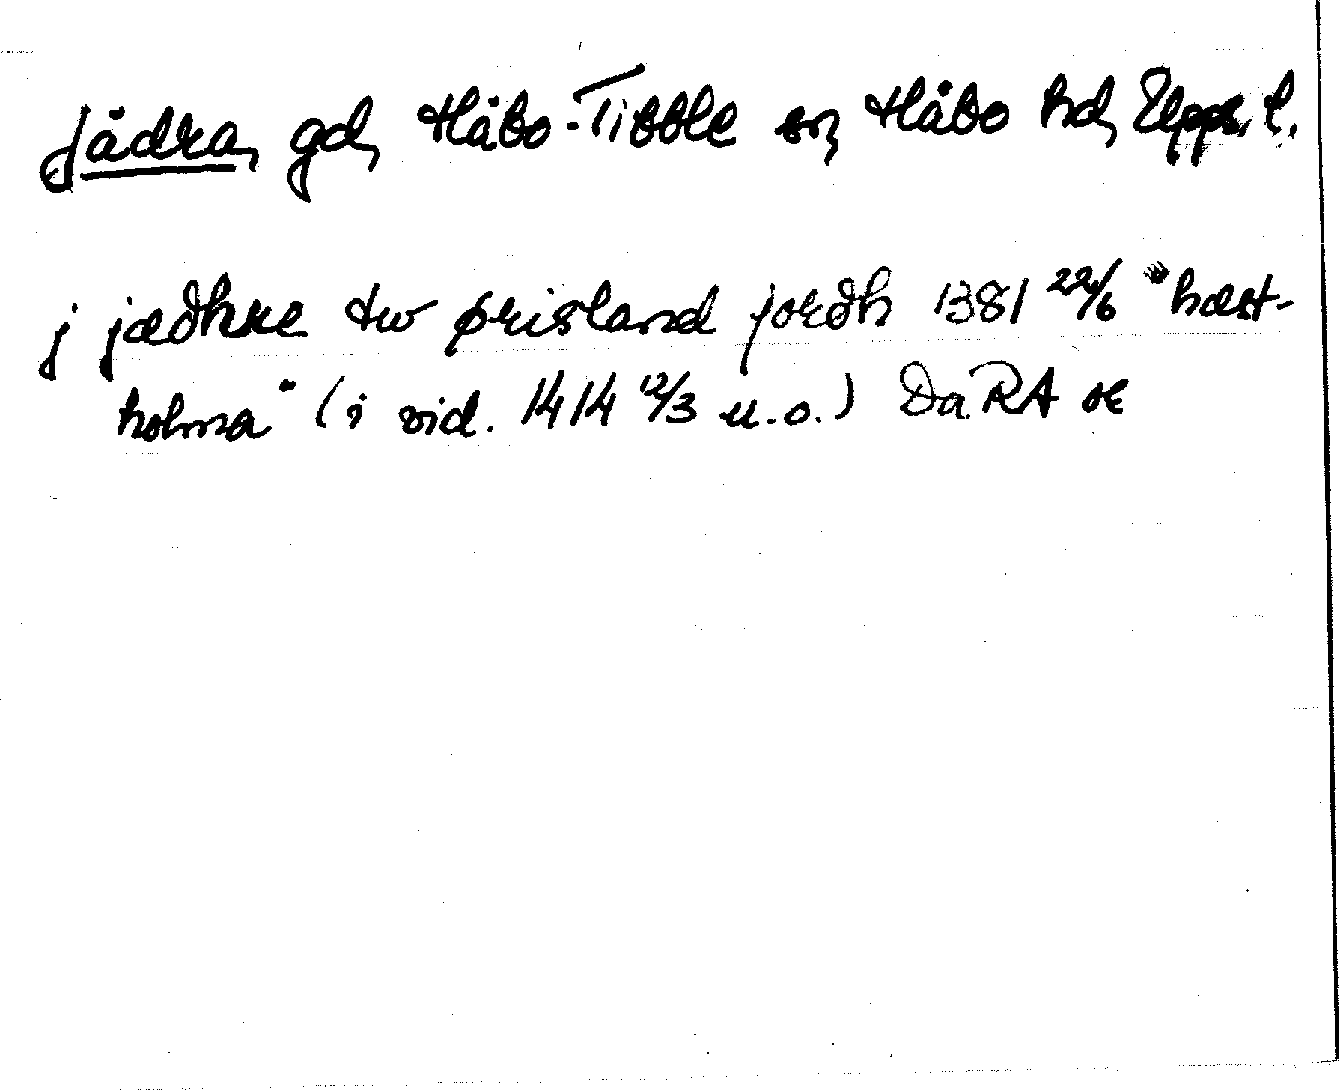 Jädra, gd, Håbo-Tibble sn, Håbo hd, Upps. l.
j jædhre tw ørisland jordh 1381 22/6 "hæst-
holma" (i vid. 1414 12/3 u.o.) Da RA or